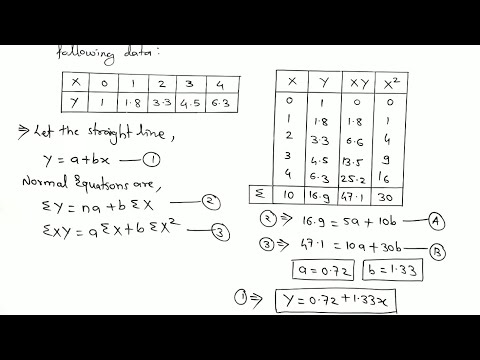 following data:
X 0 1 2 3 4
Y 1 1.8 3.3 4.5 6.3
⇒ Let the straight line,
Y = a+bx — ①
Normal Equations are,
ΣY = na + b ΣX — ②
ΣXY = a ΣX + b ΣX² — ③
X Y XY X²
0 1 0 0
1 1.8 1.8 1
2 3.3 6.6 4
3 4.5 13.5 9
4 6.3 25.2 16
Σ 10 16.9 47.1 30
② ⇒ 16.9 = 5a + 10b — Ⓐ
③ ⇒ 47.1 = 10a + 30b — Ⓑ
a = 0.72 b = 1.33
① ⇒ Y = 0.72 + 1.33x